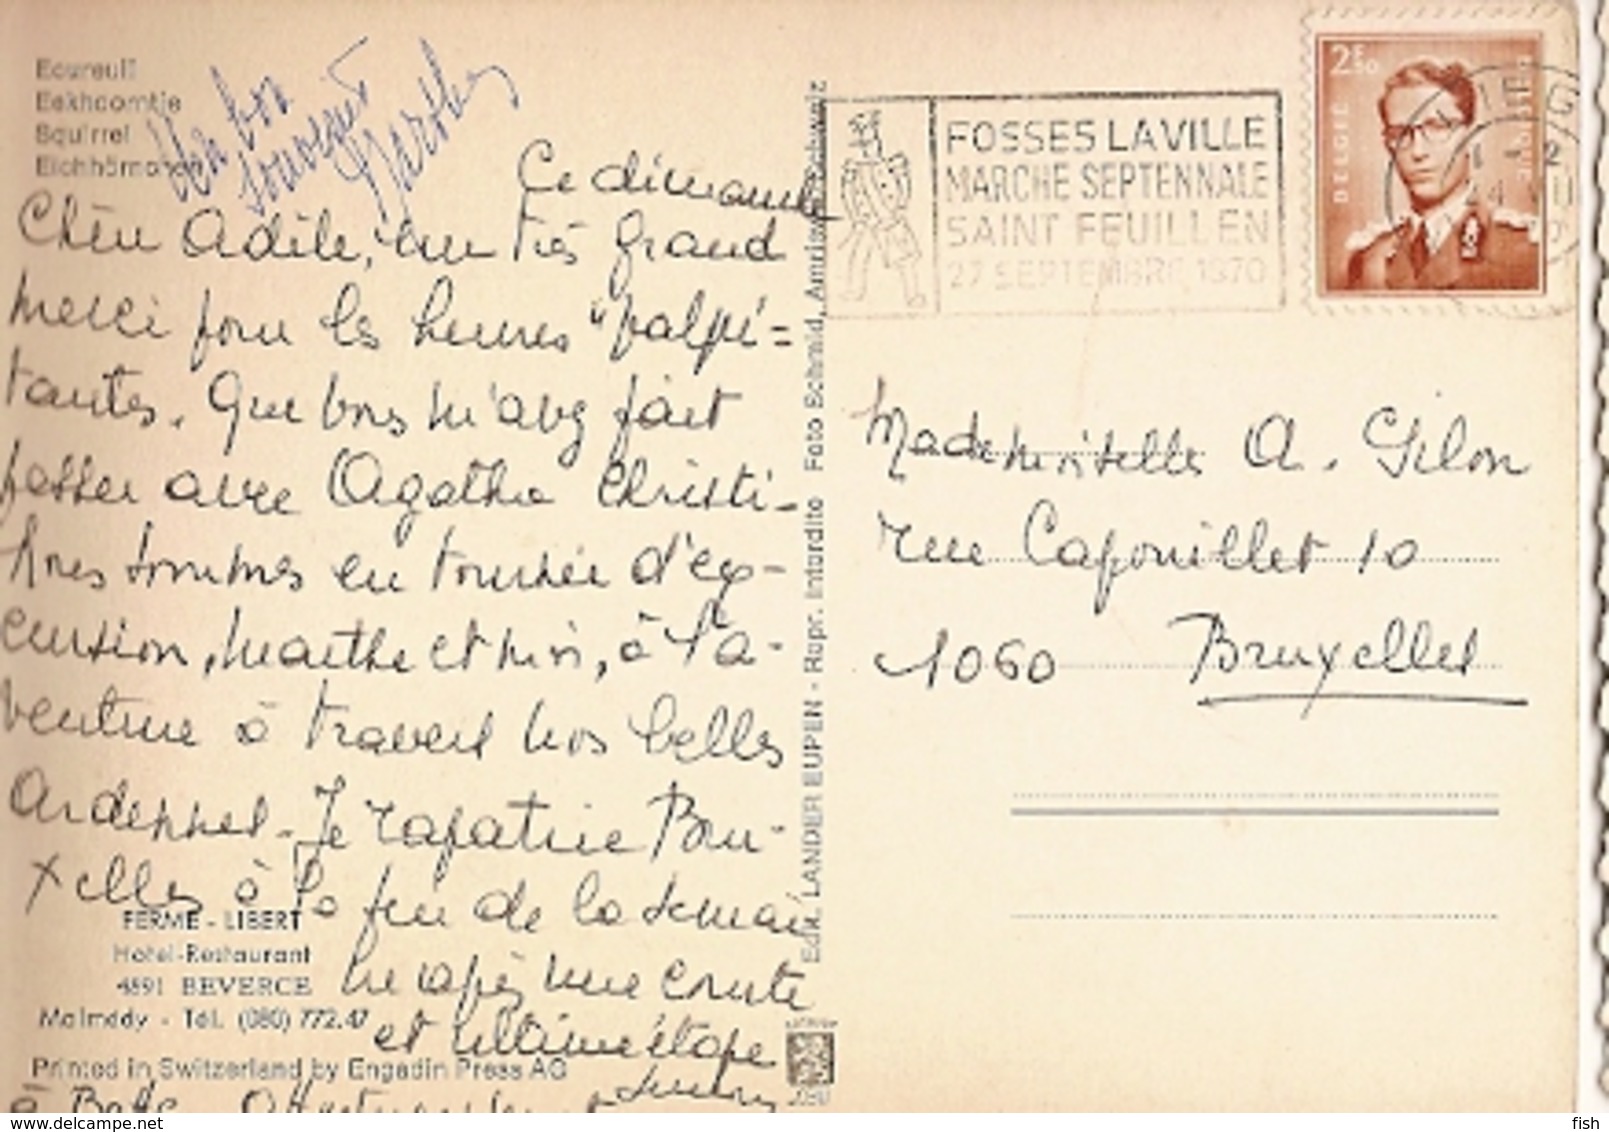 Ecureuil
Eekhoorntje
Squirrel
Eichhörnchen
Un bon
souvenir
Marthe
Ce dimanche
Chère Adèle, un très grand
merci pour les heures "palpi=
tantes. Que vous m'avez fait
passer avec Agatha Christi-
Nous sommes en tournée d'ex-
cursion, Marthe et moi, à l'a-
venture à travers nos belles
Ardennes. Je rapatrie Bru-
xelles à la fin de la semai
ne après une courte
et ultime étape
à
FERME - LIBERT
Hotel-Restaurant
4891 BEVERCE
Malmédy - Tél. (080) 772.47
Printed in Switzerland by Engadin Press AG
Edit. LANDER EUPEN - Repr. Interdite Foto Schmid, Amriswil/Schweiz
FOSSES LA VILLE
MARCHE SEPTENNALE
SAINT FEUILLEN
27 SEPTEMBRE 1970
2F50
BELGIE
BELGIQUE
Mademoiselle A. Gilon
rue Capouillet 10
1060 Bruxelles
www.delcampe.net
fish